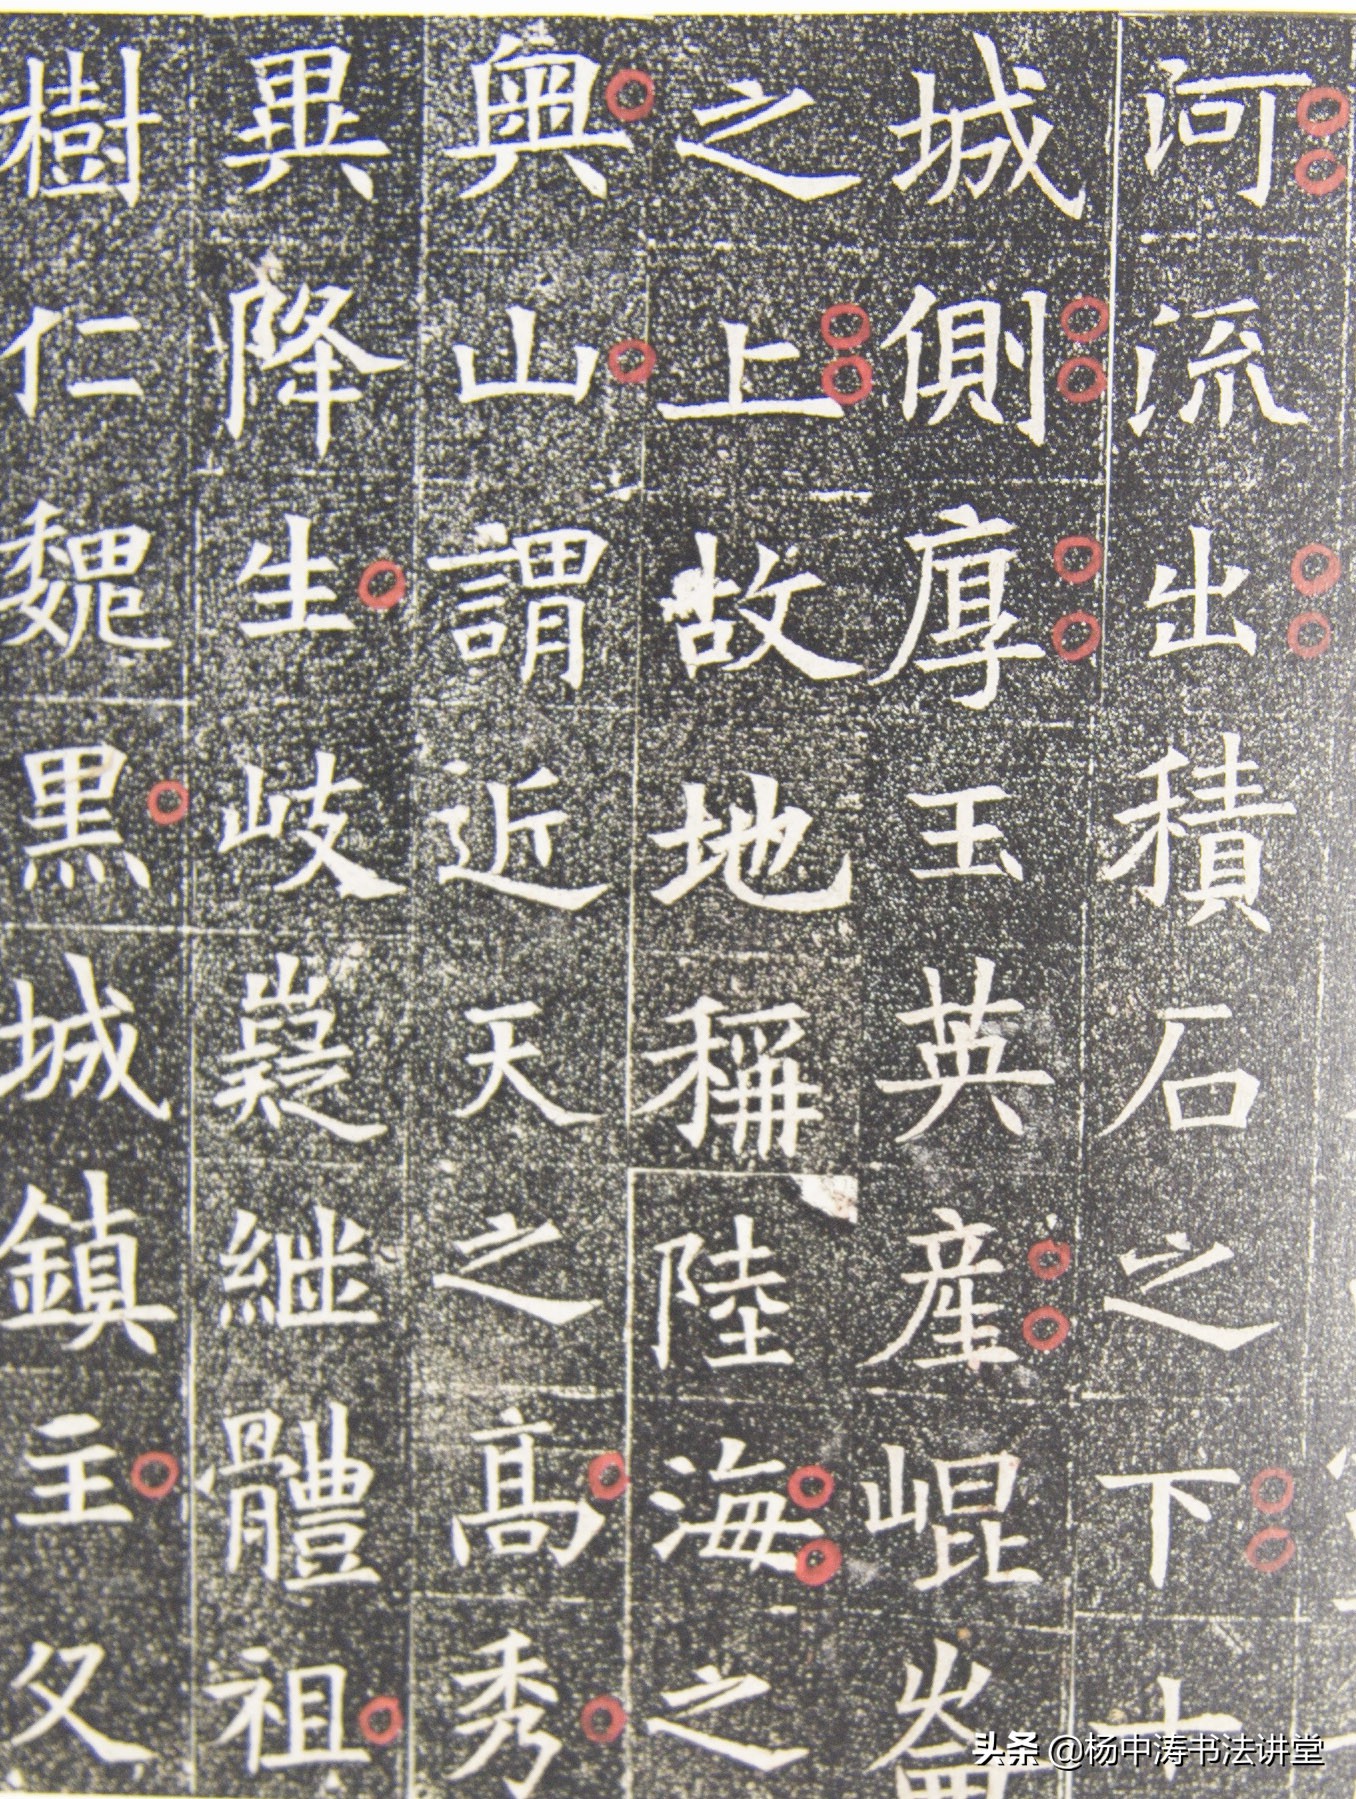 河流出積石之下
城側厚玉英産崐崘
之上故地稱陸海之
奥山謂近天之髙秀
異降生岐嶷継體祖
樹仁魏黒城鎮主父
头条 @杨中涛书法讲堂